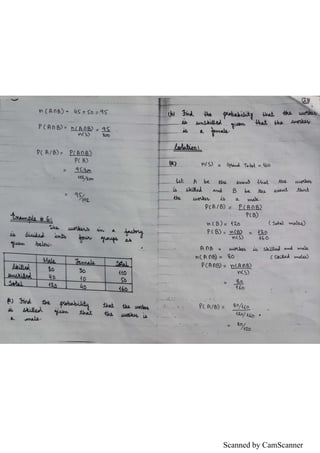 n(A∩B) = 45+50 = 95
P(A∩B) = n(A∩B) = 95
n(S) 200
P(A/B) = P(A∩B)
P(B)
Example # 6:
The workers in a factory
is divided into four groups as
given below.
Male Female Total
Skilled 80 30 110
Unskilled 40 10 50
Total 120 40 160
(A) Find the probability that the worker
is skilled given that the worker is
a male.
(b) Find the probability that the worker
is unskilled given that the worker
is a female.
Solution:
(A) n(S) = Grand Total = 160
Let A be the event that the worker
is skilled and B be the event that
the worker is a male.
P(A/B) = P(A∩B)
P(B)
n(B) = 120 (Total males)
P(B) = n(B) = 120
n(S) 160
A∩B = worker is skilled and male
n(A∩B) = 80 (skilled males)
P(A∩B) = n(A∩B)
n(S)
= 80
160
P(A/B) = 80/160
120/160
= 80/120
Scanned by CamScanner